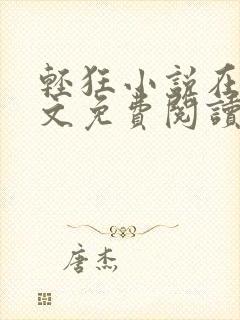 輕狂小說在
文免費閱讀
唐杰